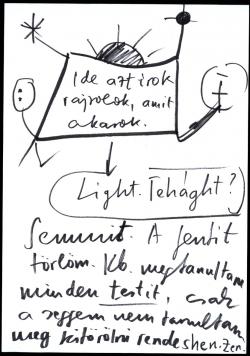 Ide azt írok
rajzolok, amit
akarok.
Light. Teháght?
Semmit. A fentit
törlöm. Kb. megtanultam
minden testit, csak
a seggem nem tanultam
meg kitörölni rendeshen. Zen.